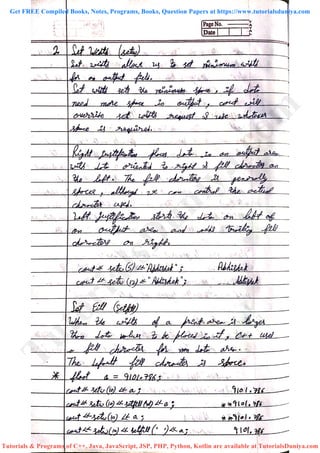 Get FREE Compiled Books, Notes, Programs, Books, Question Papers at https://www.tutorialsduniya.com
Page No.
Date
2. Set Width (setw)
Set width allows us to set minimum width
for an output field.
Set width sets the minimum space, if data
need more space in output, cout will
overwrite set width request & use whatever
space is required.
Right Justification places data in an output area
with data oriented to right & fill character on
the left. The fill character is generally
spaces, although we can control the actual
character used.
Left Justification starts the data on left of
an output area and adds trailing fill
characters on right.
cout << setw(5) << "Abhishek"; Abhishek
cout << setw(12) << "Abhishek"; Abhishek
Set Fill (setfill)
When the width of a print area is larger
than data value to be placed in it, C++ uses
a fill character for non data area.
The default fill character is space.
* float a = 9101.786;
cout << setw(10) << a; 9101.786
cout << setw(10) << setfill(*) << a; **9101.786
cout << setw(10) << a; **9101.786
cout << setw(10) << setfill(' ') << a; 9101.786
Tutorials & Programs of C++, Java, JavaScript, JSP, PHP, Python, Kotlin are available at TutorialsDuniya.com